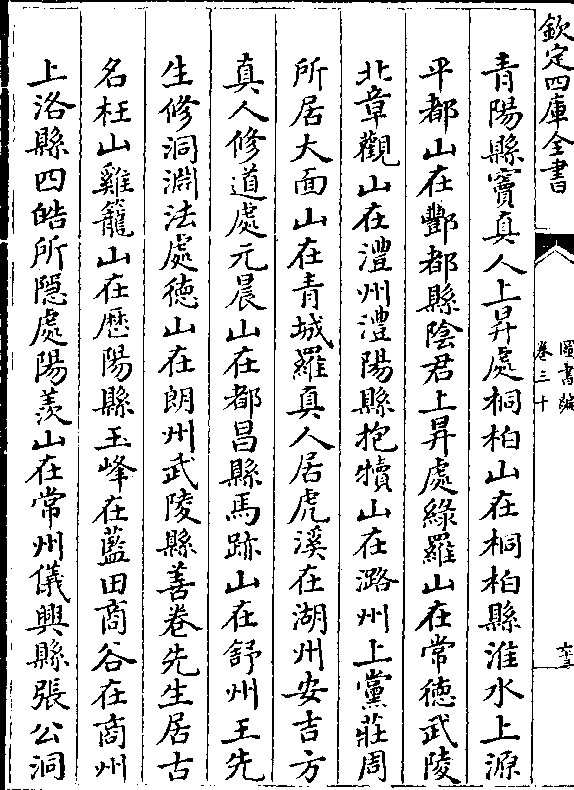 欽定四庫全書
圖書編
卷三十
六十三
青陽縣竇真人上昇處桐柏山在桐柏縣淮水上源
平都山在酆都縣陰君上昇處綠羅山在常德武陵
北章觀山在澧州澧陽縣抱犢山在潞州上黨莊周
所居大面山在青城羅真人居虎溪在湖州安吉方
真人修道處元晨山在都昌縣馬跡山在舒州王先
生修洞淵法處德山在朗州武陵縣善卷先生居古
名枉山雞籠山在歷陽縣玉峰在藍田商谷在商州
上洛縣四皓所隱處陽羨山在常州儀興縣張公洞